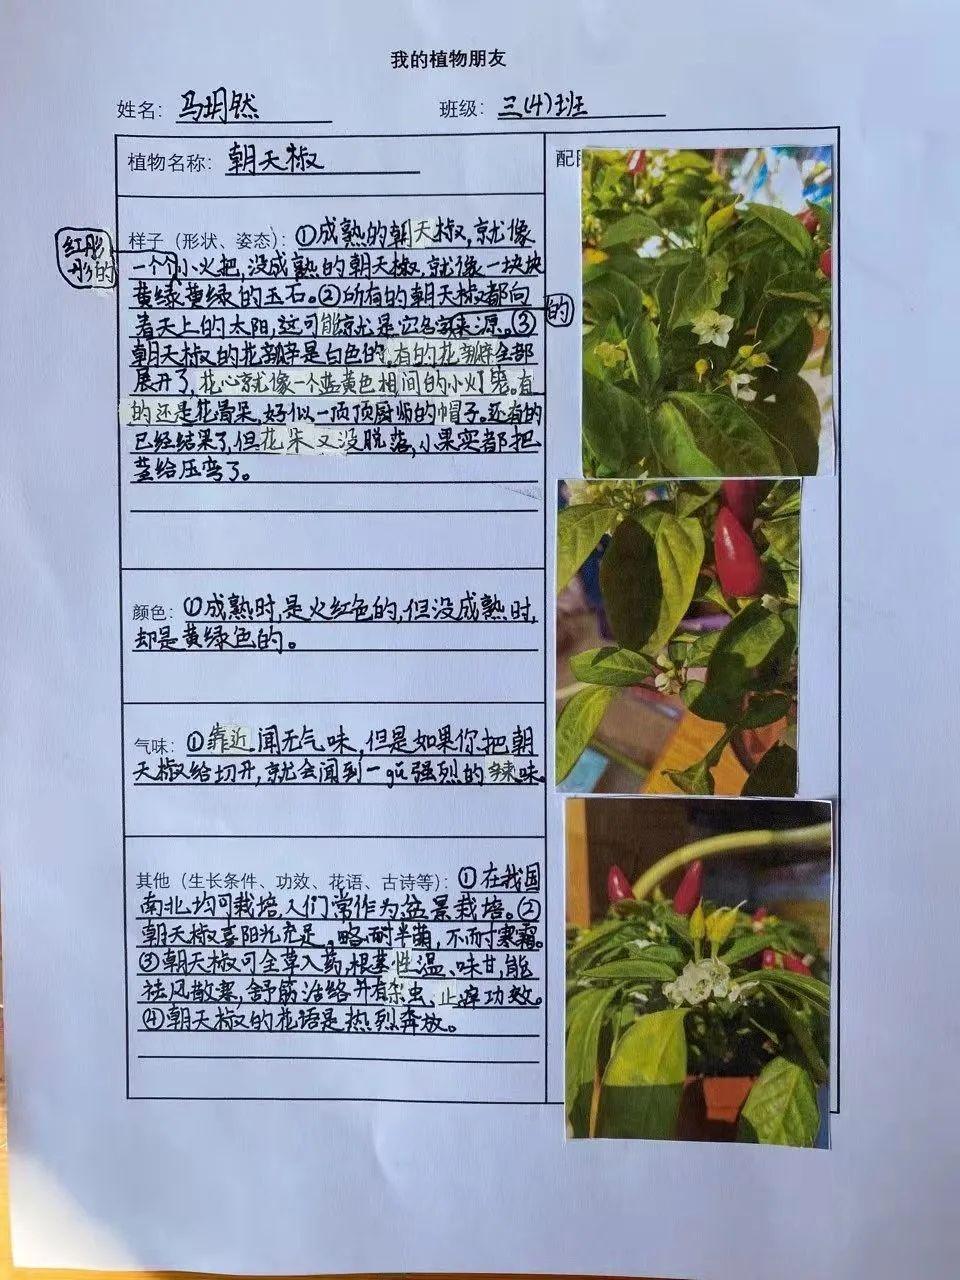 我的植物朋友
姓名：马玥然
班级：三(4)班
植物名称：朝天椒
配
样子（形状、姿态）：①成熟的朝天椒，就像
红彤彤的
一个个小火把，没成熟的朝天椒，就像一块块
黄绿黄绿的玉石。②所有的朝天椒都向
的
着天上的太阳，这可能就是它名字来源。③
朝天椒的花瓣是白色的，有的花瓣全部
展开了，花心就像一个蓝黄色相间的小灯笼。有
的还是花骨朵，好似一顶顶厨师的帽子。还有的
已经结果了，但花朵又没脱落，小果实都把
茎给压弯了。
颜色：①成熟时，是火红色的，但没成熟时，
却是黄绿色的。
气味：①靠近闻无气味，但是如果你把朝
天椒给切开，就会闻到一gǔ强烈的辣味。
其他（生长条件、功效、花语、古诗等）：①在我国
南北均可栽培，人们常作为盆景栽培。②
朝天椒喜阳光充足，略耐半荫，不耐寒霜。
③朝天椒可全草入药，根茎性温、味甘，能
祛风散寒，舒筋活络并有杀虫、止痒功效。
④朝天椒的花语是热烈奔放。